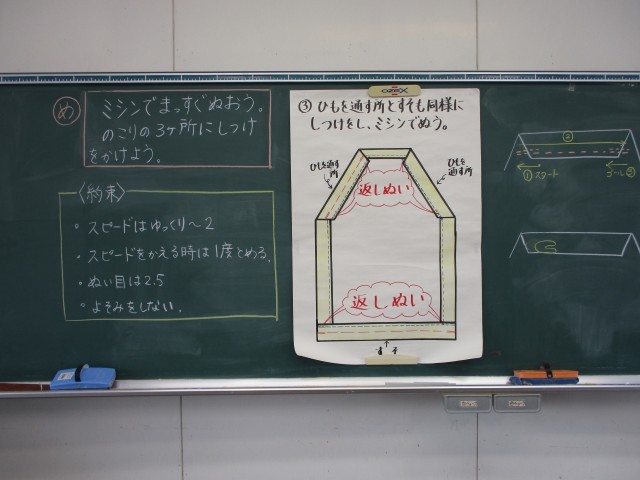 め
ミシンでまっすぐぬおう。
のこりの3ヶ所にしつけ
をかけよう。
〈約束〉
・スピードはゆっくり〜2
・スピードをかえる時は1度とめる。
・ぬい目は2.5
・よそみをしない.
③ ひもを通す所とすそも同様に
しつけをし、ミシンでぬう。
ひもを通す
所
ひもを
通す所
返しぬい
返しぬい
すそ
②
①スタート
ゴール③